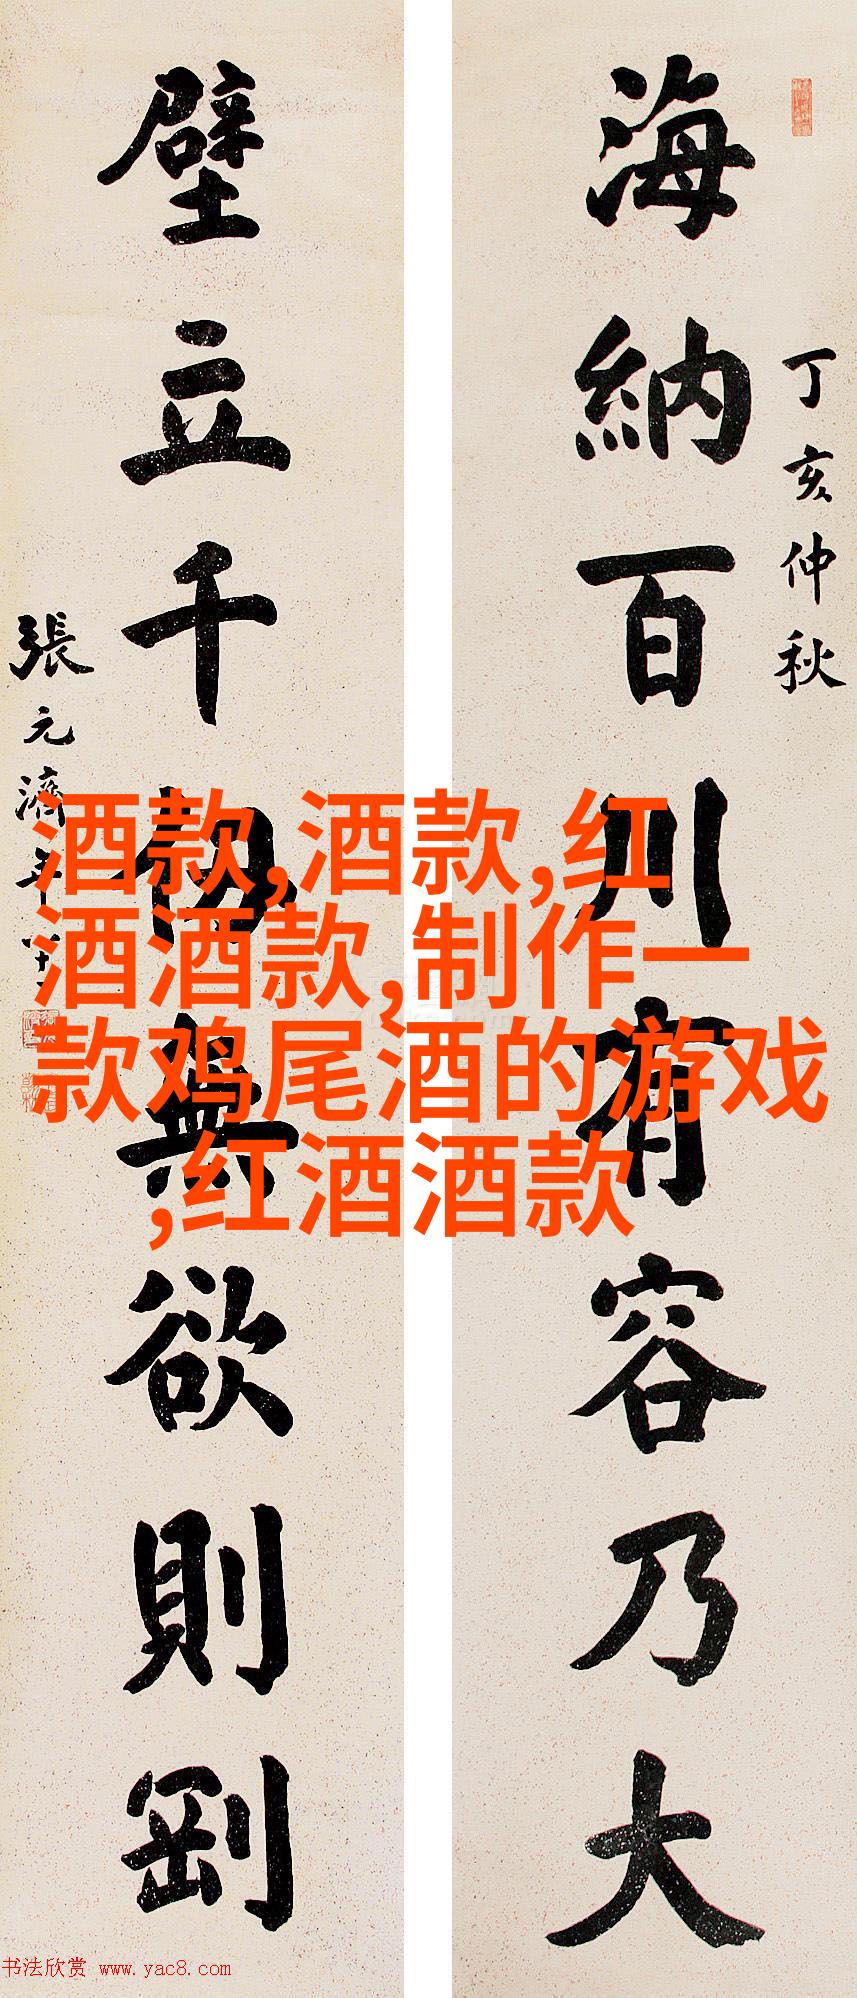 海納百川有容乃大
丁亥仲秋
壁立千仞無欲則剛
張元濟年
酒款,酒款,红
酒酒款,制作一
款鸡尾酒的游戏
,红酒酒款
书法欣赏 www.yac8.com